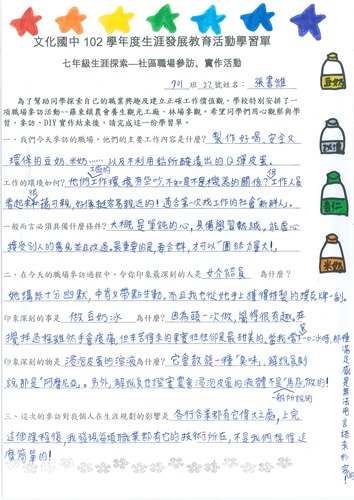 文化國中 102 學年度生涯發展教育活動學習單
七年級生涯探索—社區職場參訪、實作活動
701 班 22 號姓名: 張書維
為了幫助同學探索自己的職業興趣及建立正確工作價值觀，學校特別安排了一
項職場參訪活動~~羅東鎮農會養生觀光工廠、林場參訪。希望同學們用心觀察與學
習，參訪、DIY 實作結束後，請完成這一份學習單。
一、我們今天參訪的職場，他們的主要工作內容是什麼? 製作好喝、安全又
環保的豆奶、米奶……以及不利用鉛所醃漬出的Q彈皮蛋。
工作的環境如何? 他們的工作環境有些吵，不知是不是機器的關係? 但工作人員
看起來和藹可親，好像挺容易親近的! 適合第一次找工作的社會「新鮮人」。
一般而言必須具備什麼條件? 大概是單純的心，具備學習熱誠，能虛心
接受別人的 並且改過。最重要的是，要合群，才可以「團結力量大」!
二、在今天的職場參訪過程中，令你印象最深刻的人是 女介紹員 為什麼?
她講話十分幽默，中肯又帶點生動。而且我也從她手上獲得特製的撲克牌一副。
印象最深刻的事是 做豆奶冰 為什麼? 因為頭一次做，覺得很有趣。在
攪拌過程雖然手會痠痛，但辛苦得來的果實往往卻是最甜美的，當我嚐一口冰時，那
種滿足感是無法用言語來形容的!
印象最深刻的物是 浸泡皮蛋的溶液 為什麼? 它會散發一種「臭味」，解說員則
說那是「阿摩尼亞」。另外，解說員也證實農會浸泡皮蛋的液體不是「馬尿」做的!
一般所說的
三、這次的參訪對我個人在生涯規劃的影響是 各行各業都有它偉大之處，上完
這個課程後，我發現每項職業都有它的技術所在，不是我們想像這
麼簡單的!
豆奶
米奶